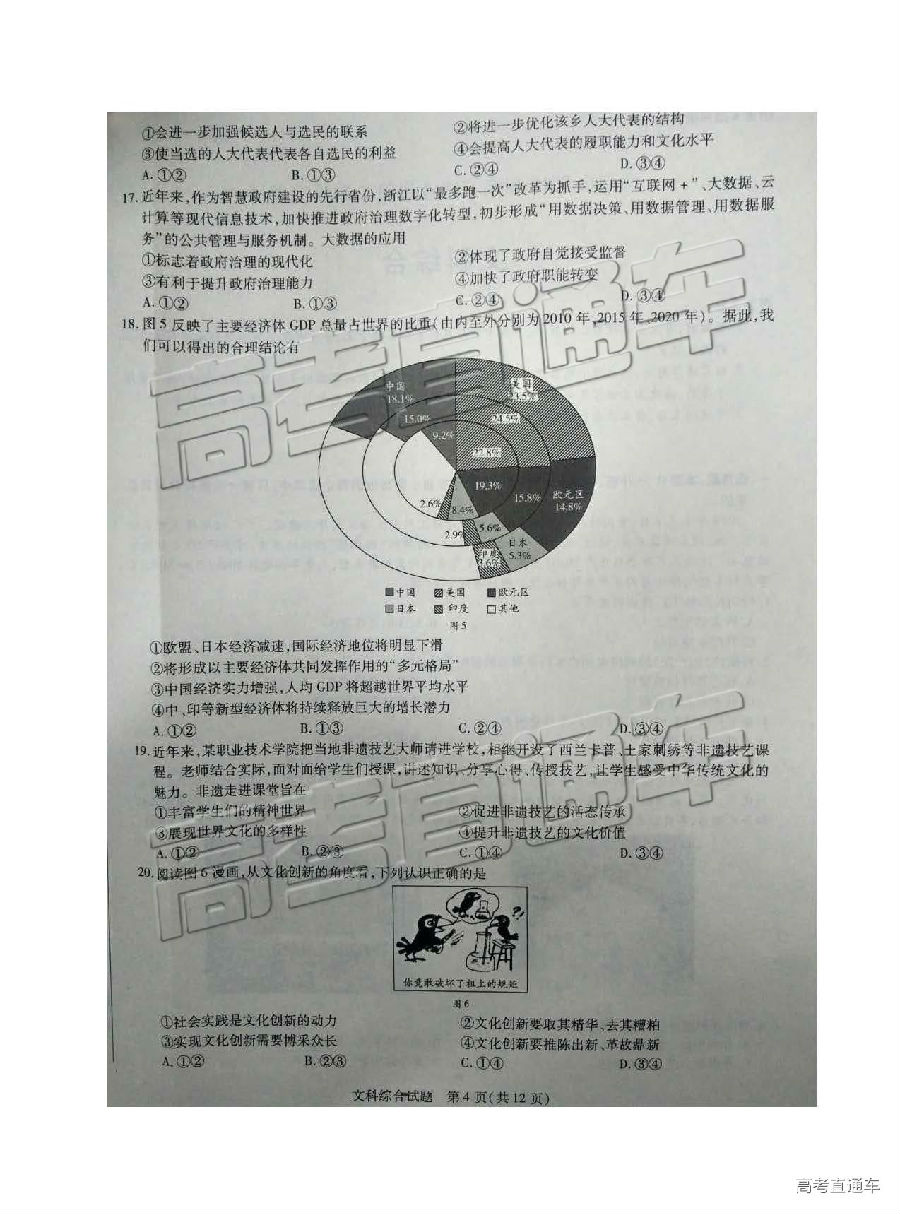 ①会进一步加强候选人与选民的联系 ②将进一步优化该乡人大代表的结构
③使当选的人大代表代表各自选民的利益 ④会提高人大代表的履职能力和文化水平
A.①② B.①③ C.②④ D.③④
17.近年来,作为智慧政府建设的先行省份,浙江以“最多跑一次”改革为抓手,运用“互联网+”、大数据、云
计算等现代信息技术,加快推进政府治理数字化转型,初步形成“用数据决策、用数据管理、用数据服
务”的公共管理与服务机制。大数据的应用
①标志着政府治理的现代化 ②体现了政府自觉接受监督
③有利于提升政府治理能力 ④加快了政府职能转变
A.①② B.①③ C.②④ D.③④
18.图5反映了主要经济体GDP总量占世界的比重(由内至外分别为2010年,2015年、2020年)。据此,我
们可以得出的合理结论有
中国
18.1%
美国
15.0%
24.5%
9.2%
22.8%
19.3%
15.8%
欧元区
14.8%
2.6%
8.4%
2.9%
5.6%
日本
5.3%
印度
3.6%
中国 美国 欧元区
日本 印度 其他
图5
①欧盟、日本经济减速,国际经济地位将明显下滑
②将形成以主要经济体共同发挥作用的“多元格局”
③中国经济实力增强,人均GDP将超越世界平均水平
④中、印等新型经济体将持续释放巨大的增长潜力
A.①② B.①③ C.②④ D.③④
19.近年来,某职业技术学院把当地非遗技艺大师请进学校,相继开设了西兰卡普、土家刺绣等非遗技艺课
程。老师结合实际,面对面给学生们授课,讲述知识、分享心得、传授技艺,让学生感受中华传统文化的
魅力。非遗走进课堂旨在
①丰富学生们的精神世界 ②促进非遗技艺的活态传承
③展现世界文化的多样性 ④提升非遗技艺的文化价值
A.①② B.②③ C.①④ D.③④
20.阅读图6漫画,从文化创新的角度看,下列认识正确的是
你竟敢破坏了祖上的规矩
图6
①社会实践是文化创新的动力 ②文化创新要取其精华、去其糟粕
③实现文化创新需要博采众长 ④文化创新要推陈出新、革故鼎新
A.①② B.②③ C.①④ D.③④
文科综合试题 第4页(共12页)
高考直通车
高考直通车
高考直通车